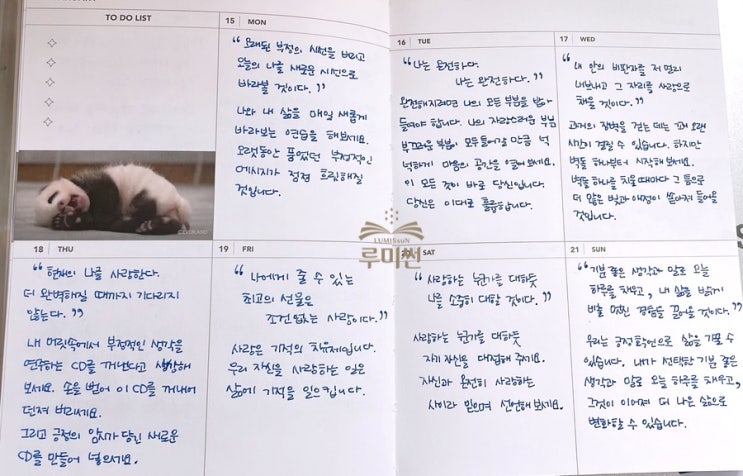 TO DO LIST
15 MON
“오래된 부정의 시선을 버리고
오늘의 나를 새로운 시선으로
바라볼 것이다.”
나와 내 삶을 매일 새롭게
바라보는 연습을 해보세요.
오랫동안 품었던 부정적인
메시지가 점점 흐릿해질
것입니다.
16 TUE
“나는 완전하다.
나는 완전하다.”
완전해지려면 나의 모든 부분을 받아
들여야 합니다. 나의 자랑스러운 부분
부끄러운 부분이 모두 들어갈 만큼 넉
넉하게 마음의 공간을 열어보세요.
이 모든 것이 바로 당신입니다.
당신은 이대로 훌륭합니다.
17 WED
“내 안의 비판자를 저 멀리
내보내고 그 자리를 사랑으로
채울 것이다.”
과거의 장벽을 걷는 데는 꽤 오랜
시간이 걸릴 수 있습니다. 하지만
벽돌 하나부터 시작해 보세요.
벽돌 하나를 치울 때마다 그 틈으로
더 많은 빛과 애정이 쏟아져 들어올
것입니다.
©EVERLAND
LUMISsuN
루미썬
18 THU
“현재의 나를 사랑한다.
더 완벽해질 때까지 기다리지
않는다.”
내 머릿속에서 부정적인 생각을
연주하는 CD를 꺼낸다고 상상해
보세요. 손을 뻗어 이 CD를 꺼내어
던져 버리세요.
그리고 긍정의 암시가 담긴 새로운
CD를 만들어 넣으세요.
19 FRI
“나에게 줄 수 있는
최고의 선물은
조건 없는 사랑이다.”
사랑은 기적의 치유제입니다.
우리 자신을 사랑하는 일은
삶에 기적을 일으킵니다.
20 SAT
“사랑하는 누군가를 대하듯
나를 소중히 대할 것이다.”
사랑하는 누군가를 대하듯
자기 자신을 대접해 주세요.
자신과 온전히 사랑하는
사이라 믿으며 선언해 보세요.
21 SUN
“기분 좋은 생각과 말로 오늘
하루를 채우고, 내 삶을 밝히기
바로 멋진 경험을 끌어올 것이다.”
우리는 긍정 확언으로 삶을 가꿀 수
있습니다. 내가 선택한 기분 좋은
생각과 말로 오늘 하루를 채우고,
그것이 이어져 더 나은 삶으로
변화할 수 있습니다.